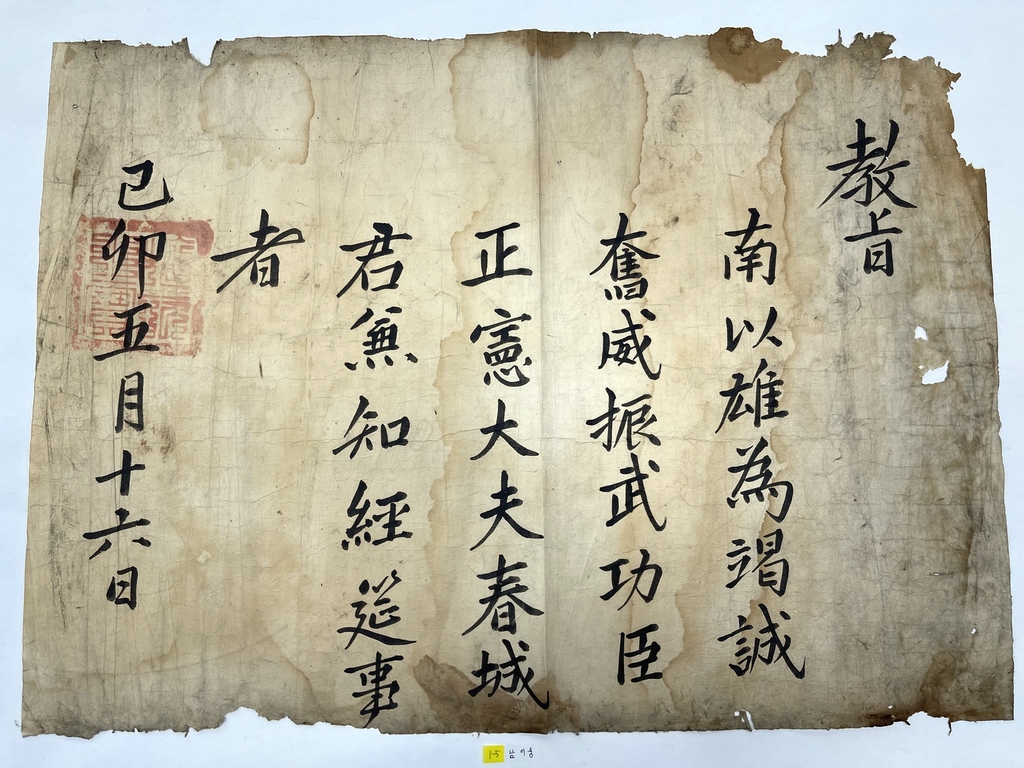 教旨
南以雄為竭誠
奮威振武功臣
正憲大夫春城
君兼知經筵事
者
己卯五月十六日
1-5 남이웅